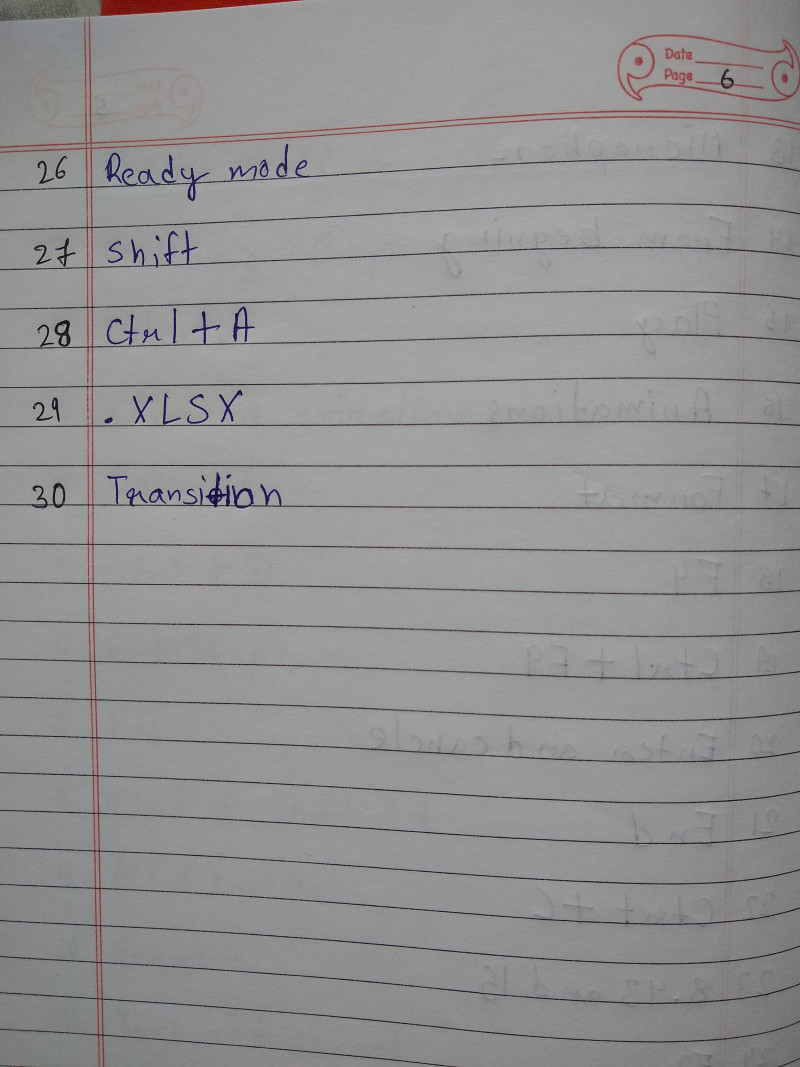 Date
Page 6
26 Ready mode
27 Shift
28 Ctrl + A
29 .XLSX
30 Transition